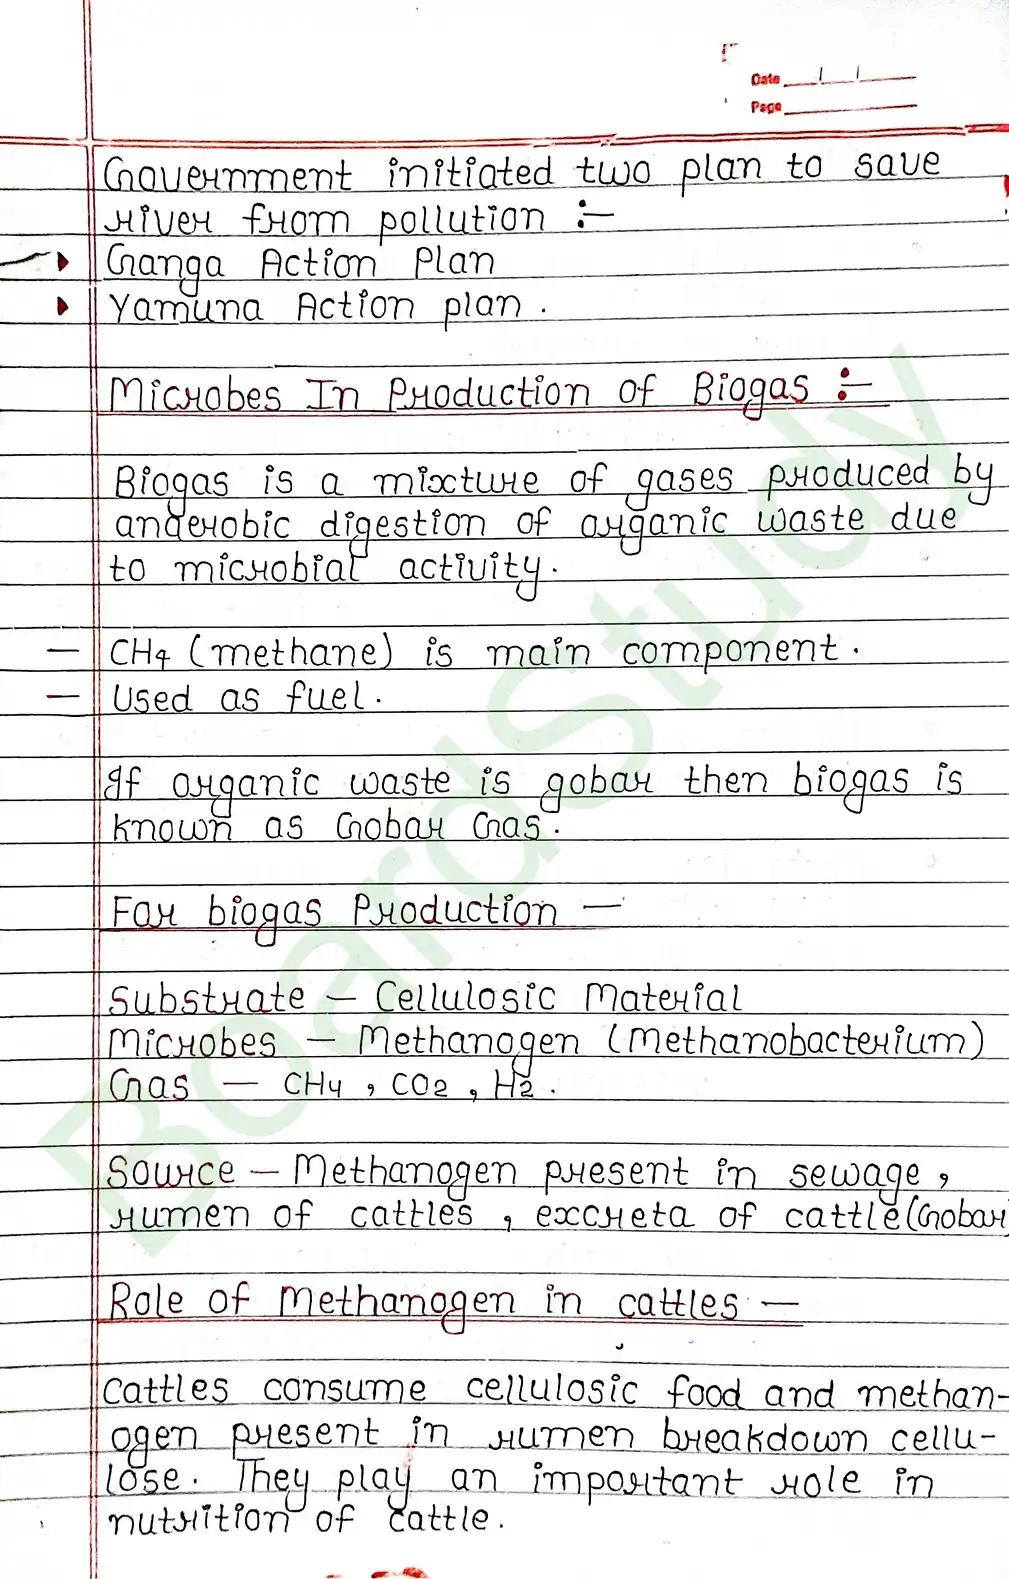 Date
Page
Government initiated two plan to save
river from pollution :-
Ganga Action Plan
Yamuna Action plan.
Microbes In Production of Biogas :-
Biogas is a mixture of gases produced by
anaerobic digestion of organic waste due
to microbial activity.
— CH4 (methane) is main component.
— Used as fuel.
If organic waste is gobar then biogas is
known as Gobar Gas.
For biogas Production —
Substrate — Cellulosic Material
Microbes — Methanogen (Methanobacterium)
Gas — CH4, CO2, H2.
Source — Methanogen present in sewage,
rumen of cattles, excreta of cattle (Gobar
Role of Methanogen in cattles —
Cattles consume cellulosic food and methan-
ogen present in rumen breakdown cellu-
lose. They play an important role in
nutrition of cattle.
BoardStudy